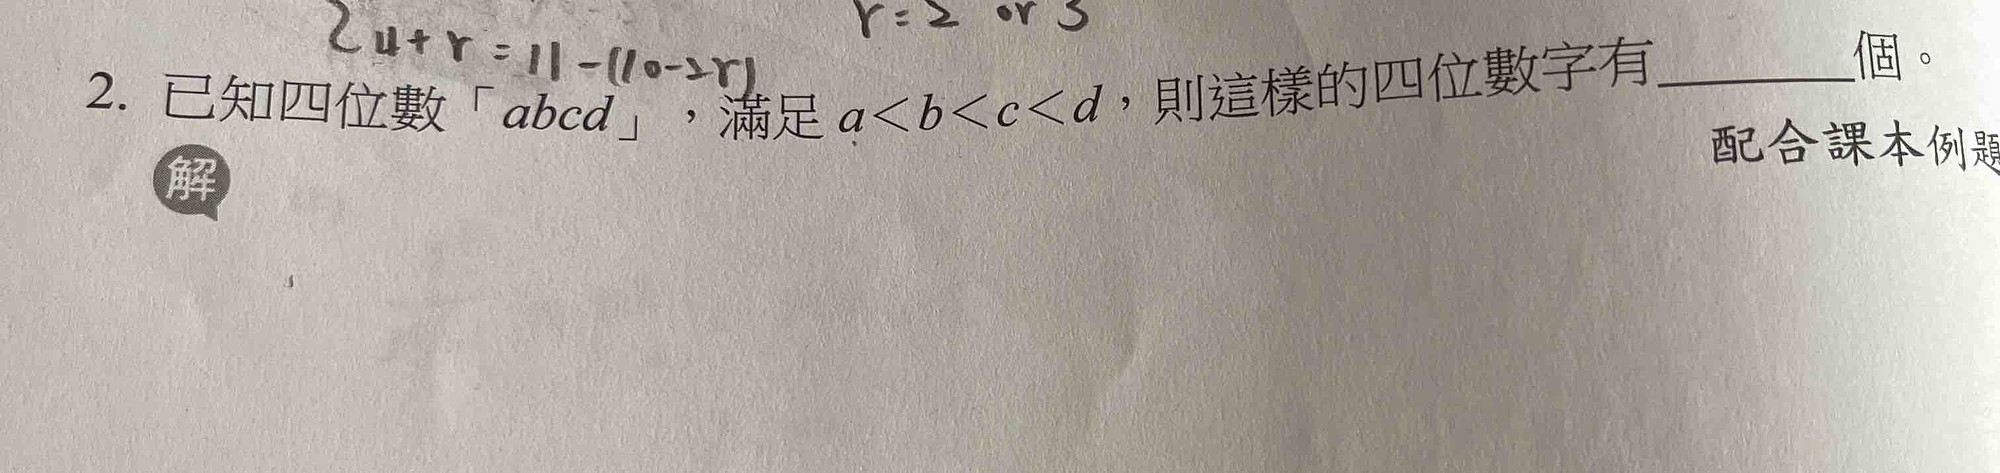 r = 2 or 3
24+r = 11-(10-2r)
2. 已知四位數「abcd」,滿足 a<b<c<d,則這樣的四位數字有______個。
配合課本例題
解